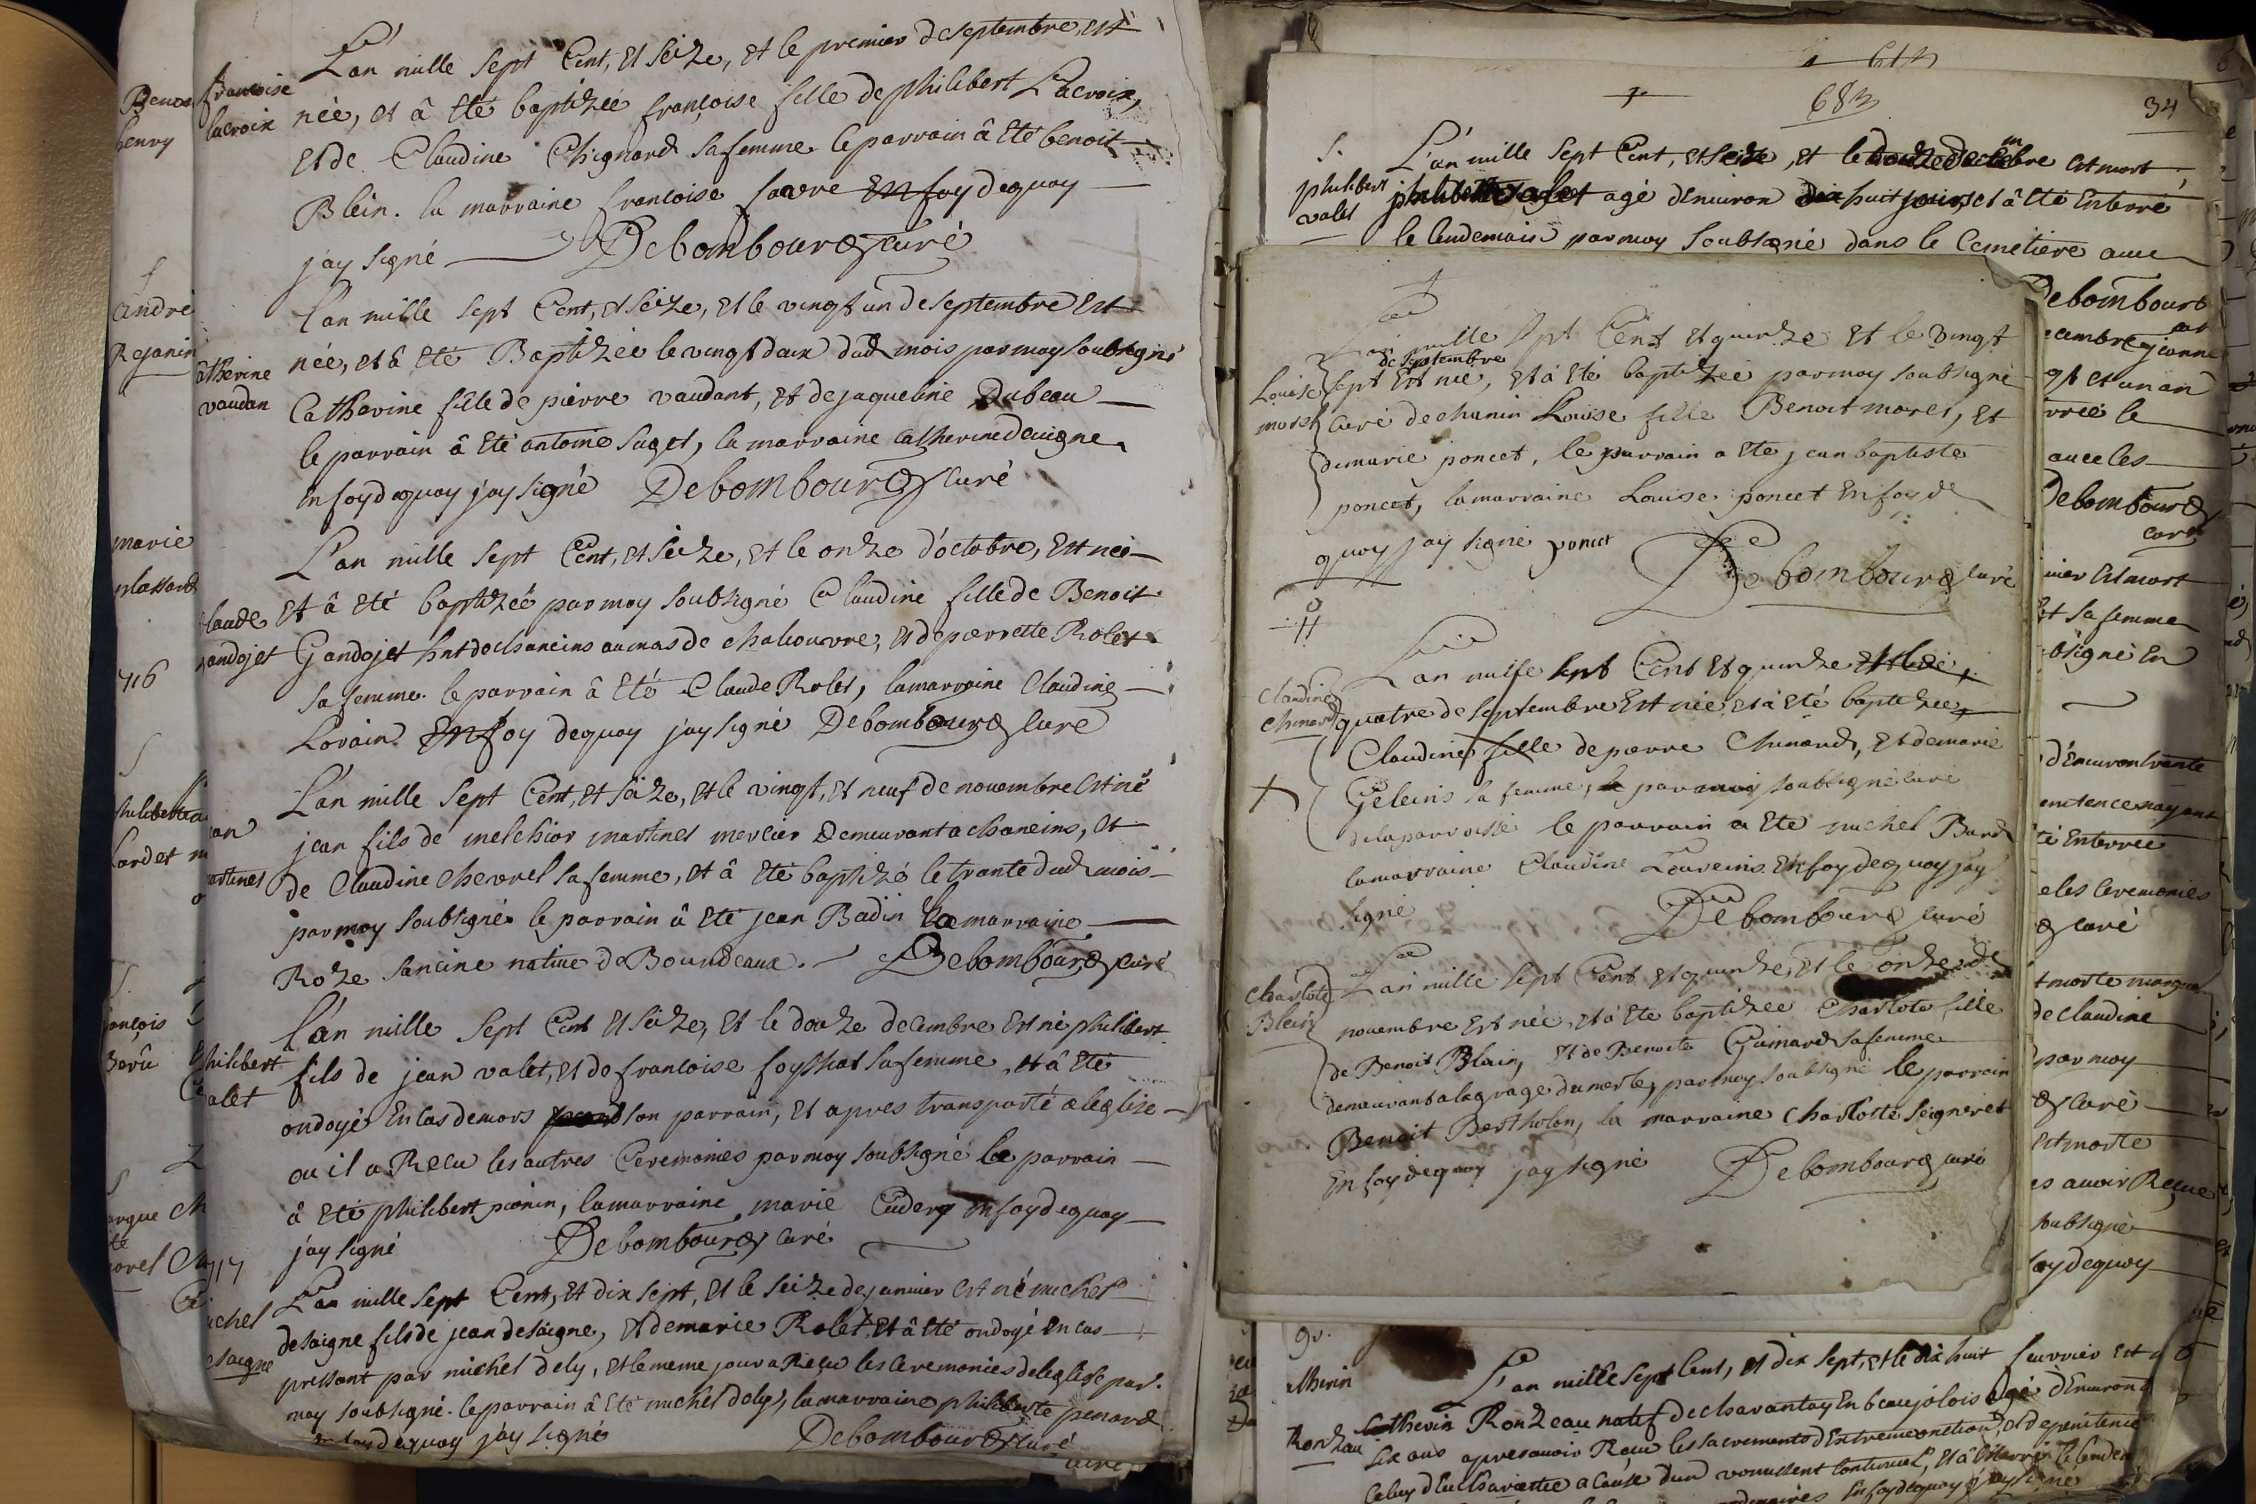 L'an mille sept Cent, et seize, et le premier de septembre, est
francoise
lacroix
née, et à été baptizée françoise fille de philibert Lacroix,
et de Claudine Chignard sa femme. le parrain à été benoit
Blein. la marraine francoise favre en foy de quoy
j'ay signé Debombourg curé
l'an mille sept Cent, et seize, et le vingt un de septembre est
née, et à été Baptizée le vingt deux dud mois par moy soubsigné
atherine
vaudan
Catherine fille de pierre vaudant, et de jaqueline Dubeau
le parrain à été antoine saget, la marraine catherine
en foy de quoy j'ay signé Debombourg curé
L'an mille sept Cent, et seize, et le onze d'octobre, est née
et à été baptizée par moy soubsigné Claudine fille de Benoit
laude
andojet
Gandojet hnt de chaneins au mas de chaliouvre, et de pierrette Rolet
sa femme. le parrain à été Claude Rolet, la marraine Claudine
Lorain. en foy de quoy j'ay signé Debombourg curé
L'an mille sept Cent, et seize, et le vingt, et neuf de novembre est né
jean fils de melchior martinet mercier demeurant a chaneins, et
an
artinet
de Claudine chevrel sa femme, et à été baptizé le trante dud mois
par moy soubsigné le parrain à été jean Badin la marraine
Roze sancine native de Bourdeaux. Debombourg curé
l'an mille sept Cent et seize, et le douze decembre est né philibert
hilibert
alet
fils de jean valet, et de francoise foyssiat sa femme, et à été
ondoyé en cas de mors son parrain, et apres transporté a leglize
ou il a Recu les autres Ceremonies par moy soubsigné le parrain
à été philibert pionin, la marraine marie Cudery en foy de quoy
j'ay signé Debombourg curé
717
L'an mille sept Cent, et dix sept, et le seize de janvier est né michel
ichel
esaigne
desaigne fils de jean desaigne, et de marie Rolet, et à été ondoyé en cas
pressant par michel dely, et le meme jour a Reçu les ceremonies de leglise par
moy soubsigné. le parrain à été michel dely, la marraine philiberte penard
en foy de quoy j'ay signé Debombourg curé
Benoi
henry
andré
Rejanin
marie
plassard
716
philiberte
cardet
ançois
arque
ovel
683
34
S.
philibert
valet
L'an mille sept Cent, et seize, et le est mort
philibert valet agé denviron dix huit jours, et à été enterré
le lendemain par moy soubsigné dans le Cemetiere avec
Debombourg
l'an mille sept Cent et quinze et le vingt
de septembre
Louise
morel
sept est née, et à été baptizée par moy soubsigné
curé de chanin Louise fille Benoit morel, et
de marie poncet, le parrain a été jean baptiste
poncet, la marraine Louise poncet en foy de
quoy j'ay signé poncet
Debombourg curé
L'an mille sept Cent et quinze et le
Claudine
chinard
quatre de septembre est née, et à été baptizée,
Claudine fille de pierre Chinard, et de marie
Geleins sa femme, par moy soubsigné curé
de la parroisse le parrain a été michel Bard
la marraine Claudine Loureins. en foy de quoy j'ay
signé
Debombourg curé
L'an mille sept Cent et quinze, et le onze de
Charlote
Blein
novembre est née, et à été baptizée Charlote fille
de Benoit Blain, et de Benoite Guinard sa femme
demeurant a la grage du merle, par moy soubsigné le parrain
Benoit Bertholon, la marraine Charlotte seigneret
En foy de quoy j'ay signé Debombourg curé
gt et un an
avec les
Debombourg
curé
est mort
et sa femme
bsigné en
d'environ trante
té enterrée
e les ceremonies
curé
de claudine
par moy
curé
est morte
es avoir Reçue
soubsigné
oy de quoy
Ronzeau
L'an mille sept Cent, et dix sept, et le dix huit fevrier est
Cathevin Ronzeau natif de charantay en beaujolois agé d'environ
six ans apres avoir Reçu les sacrements d'Extreme onction, et de penitence
celuy d'Eucharistie a cause d'un vomissent continuel, et à été enterré le lendem
en foy de quoy j'ay signé